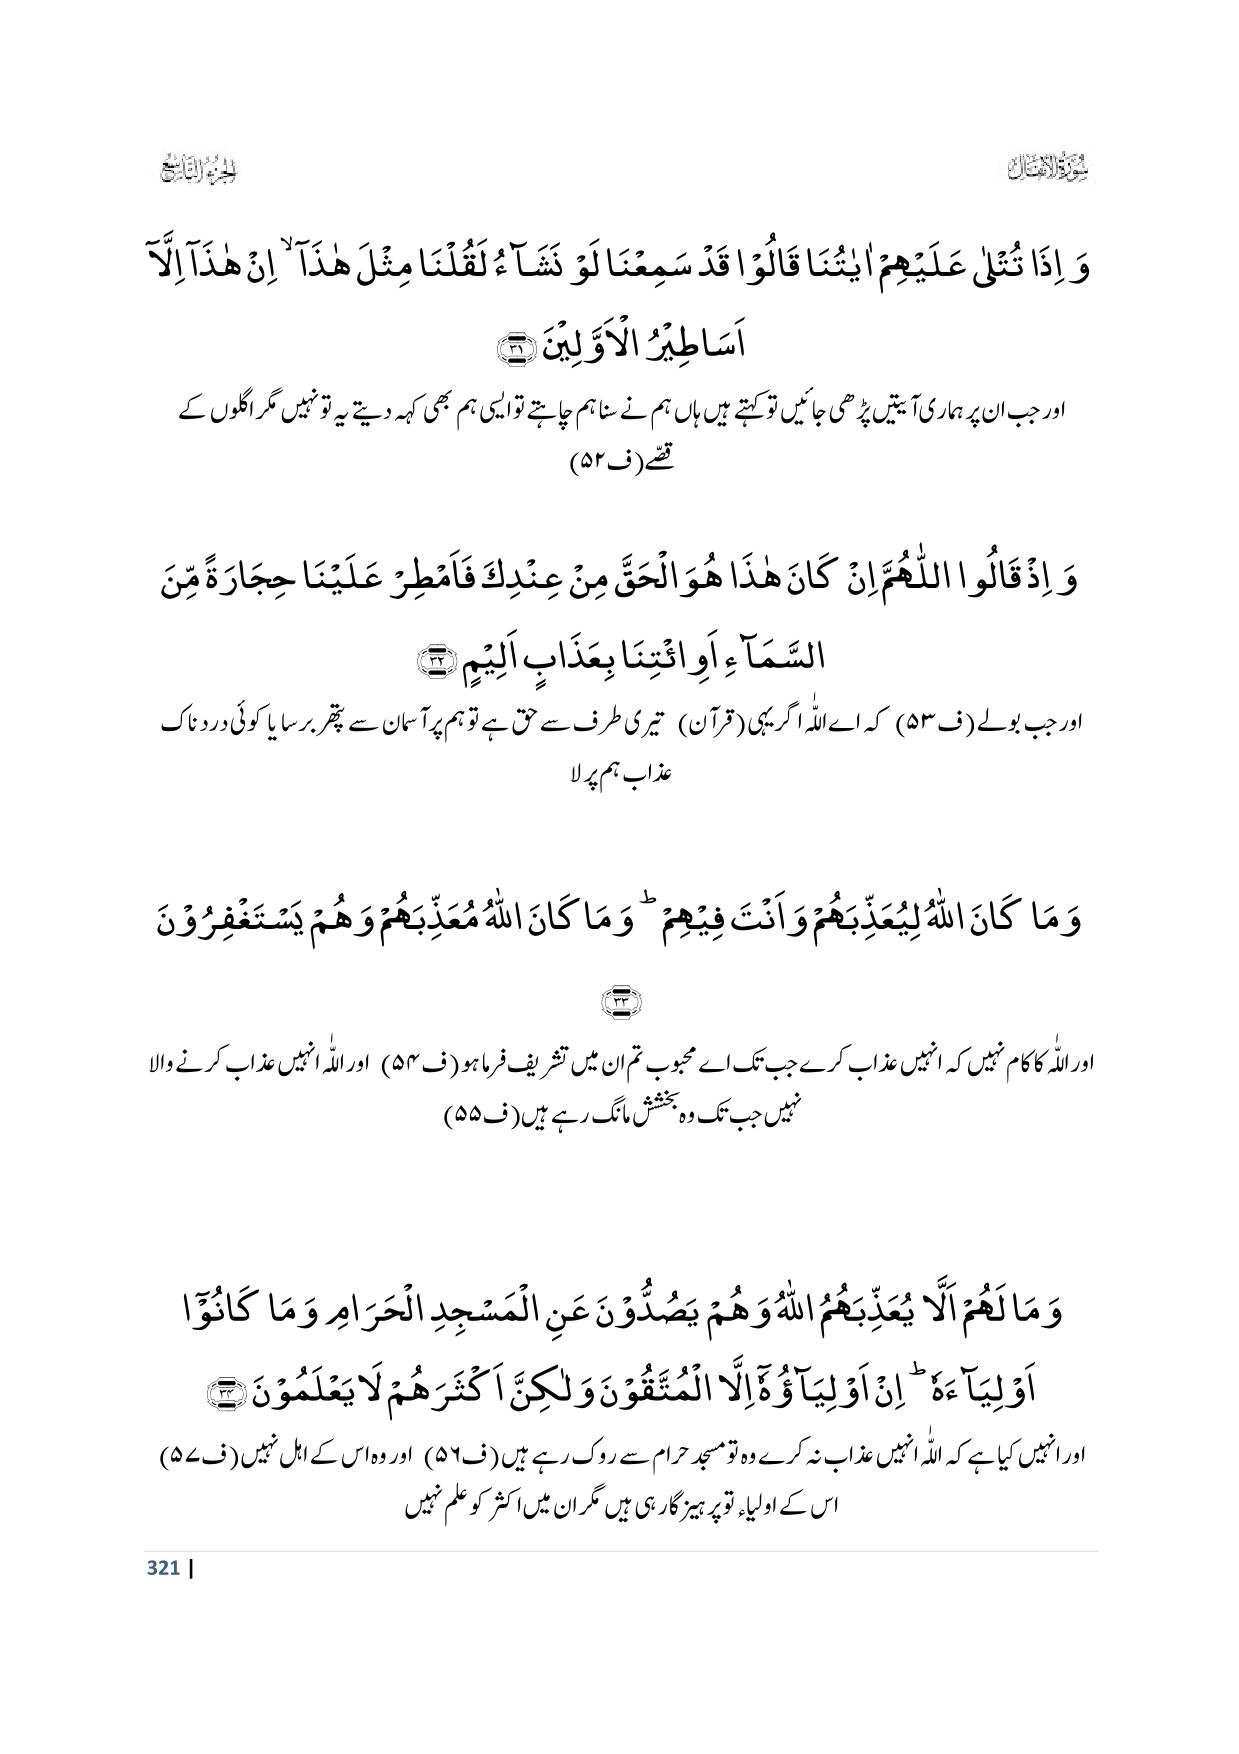 سُوۡرَةُ الۡاَنۡفَالِ
الجزء التاسع
وَ اِذَا تُتْلٰی عَلَیْهِمْ اٰیٰتُنَا قَالُوْا قَدْ سَمِعْنَا لَوْ نَشَآءُ لَقُلْنَا مِثْلَ هٰذَاۤ ۙ اِنْ هٰذَاۤ اِلَّاۤ
اَسَاطِیْرُ الْاَوَّلِیْنَ ﴿۳۱﴾
اور جب ان پر ہماری آیتیں پڑھی جائیں تو کہتے ہیں ہاں ہم نے سنا ہم چاہتے تو ایسی ہم بھی کہہ دیتے یہ تو نہیں مگر اگلوں کے
قصّے (ف۵۲)
وَ اِذْ قَالُوا اللّٰهُمَّ اِنْ کَانَ هٰذَا هُوَ الْحَقَّ مِنْ عِنْدِكَ فَاَمْطِرْ عَلَیْنَا حِجَارَةً مِّنَ
السَّمَآءِ اَوِ ائْتِنَا بِعَذَابٍ اَلِیْمٍ ﴿۳۲﴾
اور جب بولے (ف۵۳) کہ اے اللّٰہ اگر یہی (قرآن) تیری طرف سے حق ہے تو ہم پر آسمان سے پتھر برسا یا کوئی دردناک
عذاب ہم پر لا
وَ مَا کَانَ اللّٰهُ لِیُعَذِّبَهُمْ وَ اَنْتَ فِیْهِمْ ؕ وَ مَا کَانَ اللّٰهُ مُعَذِّبَهُمْ وَ هُمْ یَسْتَغْفِرُوْنَ
﴿۳۳﴾
اور اللّٰہ کا کام نہیں کہ انہیں عذاب کرے جب تک اے محبوب تم ان میں تشریف فرما ہو (ف۵۴) اور اللّٰہ انہیں عذاب کرنے والا
نہیں جب تک وہ بخشش مانگ رہے ہیں (ف۵۵)
وَ مَا لَهُمْ اَلَّا یُعَذِّبَهُمُ اللّٰهُ وَ هُمْ یَصُدُّوْنَ عَنِ الْمَسْجِدِ الْحَرَامِ وَ مَا کَانُوْۤا
اَوْلِیَآءَهٗ ؕ اِنْ اَوْلِیَآؤُهٗۤ اِلَّا الْمُتَّقُوْنَ وَ لٰکِنَّ اَکْثَرَهُمْ لَا یَعْلَمُوْنَ ﴿۳۴﴾
اور انہیں کیا ہے کہ اللّٰہ انہیں عذاب نہ کرے وہ تو مسجد حرام سے روک رہے ہیں (ف۵۶) اور وہ اس کے اہل نہیں (ف۵۷)
اس کے اولیاء تو پرہیزگار ہی ہیں مگر ان میں اکثر کو علم نہیں
321 |